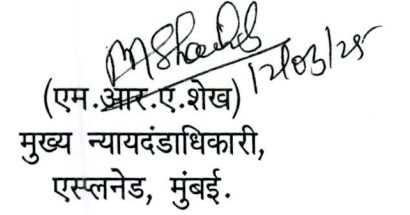 12/03/25
(एम.आर.ए.शेख)
मुख्य न्यायदंडाधिकारी,
एस्प्लनेड, मुंबई.